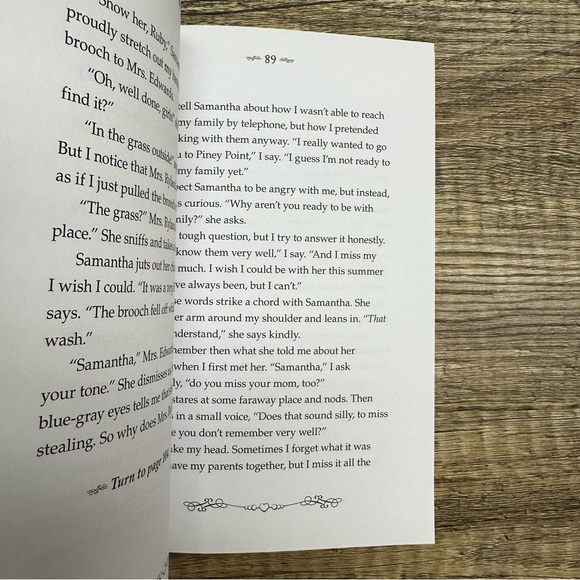 "Show her, Ruby,"
proudly stretch out my
brooch to Mrs. Edwards.
"Oh, well done, girls!"
find it?"
"In the grass outside
But I notice that Mrs.
as if I just pulled the
"The grass?" Mrs.
place." She sniffs and
Samantha juts out her
I wish I could. "It was a
says. "The brooch fell off
wash."
"Samantha," Mrs.
your tone." She dismisses
blue-gray eyes tell me
stealing. So why does Mrs.
Turn to page
89
tell Samantha about how I wasn't able to reach
my family by telephone, but how I pretended
king with them anyway. "I really wanted to go
u to Piney Point," I say. "I guess I'm not ready to
my family yet."
ect Samantha to be angry with me, but instead,
s curious. "Why aren't you ready to be with
mily?" she asks.
tough question, but I try to answer it honestly.
know them very well," I say. "And I miss my
much. I wish I could be with her this summer
ve always been, but I can't."
se words strike a chord with Samantha. She
er arm around my shoulder and leans in. "That
nderstand," she says kindly.
member then what she told me about her
when I first met her. "Samantha," I ask
ly, "do you miss your mom, too?"
stares at some faraway place and nods. Then
in a small voice, "Does that sound silly, to miss
e you don't remember very well?"
ke my head. Sometimes I forget what it was
ave my parents together, but I miss it all the